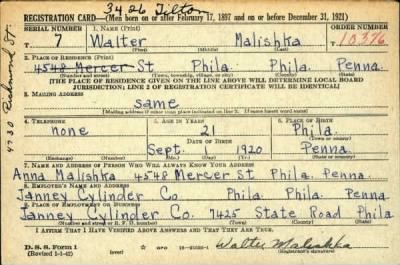 3426 Tilton
REGISTRATION CARD—(Men born on or after February 17, 1897 and on or before December 31, 1921)
SERIAL NUMBER 1. NAME (Print) ORDER NUMBER
7 Walter Malishka 10376
(First) (Middle) (Last)
2. PLACE OF RESIDENCE (Print)
4548 Mercer St Phila. Phila Penna.
(Number and street) (Town, township, village, or city) (County) (State)
[THE PLACE OF RESIDENCE GIVEN ON THE LINE ABOVE WILL DETERMINE LOCAL BOARD
JURISDICTION; LINE 2 OF REGISTRATION CERTIFICATE WILL BE IDENTICAL]
3. MAILING ADDRESS
same
[Mailing address if other than place indicated on line 2. If same insert word same]
4. TELEPHONE 5. AGE IN YEARS 6. PLACE OF BIRTH
none 21 Phila.
DATE OF BIRTH (Town or county)
Sept. 1 1920 Penna.
(Exchange) (Number) (Mo.) (Day) (Yr.) (State or country)
7. NAME AND ADDRESS OF PERSON WHO WILL ALWAYS KNOW YOUR ADDRESS
Anna Malishka 4548 Mercer St Phila. Penna.
8. EMPLOYER'S NAME AND ADDRESS
Janney Cylinder Co Phila. Phila. Penna
9. PLACE OF EMPLOYMENT OR BUSINESS
Janney Cylinder Co. 7425 State Road Phila
(Number and street or R. F. D. number) (Town) (County) (State)
I AFFIRM THAT I HAVE VERIFIED ABOVE ANSWERS AND THAT THEY ARE TRUE.
D. S. S. Form 1
(Revised 1-1-42) Walter Malishka
(Registrant's signature)
4730 Richmond St.